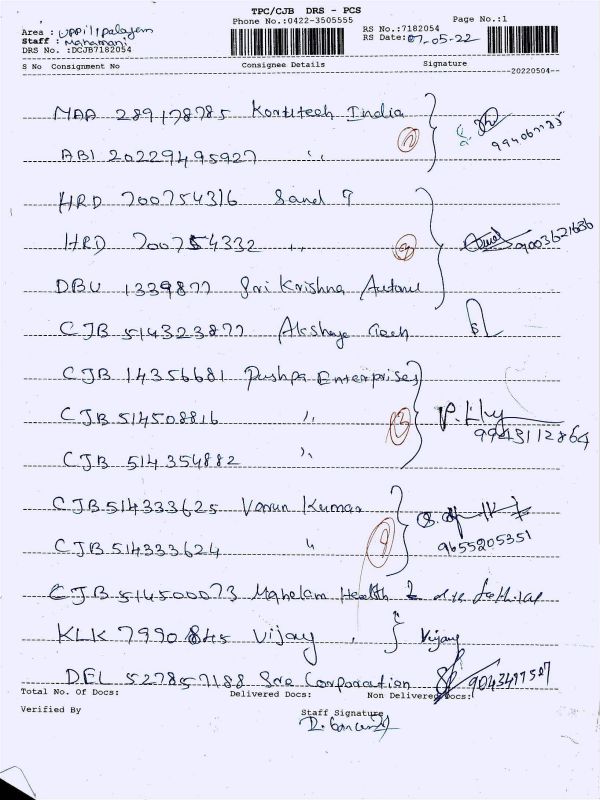 TPC/CJB DRS - PCS
Phone No.:0422-3505555
Page No.:1
Area : Uppilipalayam
Staff : Mahamani
DRS No. :DCJB7182054
RS No.:7182054
RS Date: 07-05-22
S No Consignment No Consignee Details Signature
20220504
MAA 289178785 India
ABI 20229495927 "
9940671135
HRD 700754316 Sand 9
HRD 700754332 "
9003621686
DBU 1339877 Sri Krishna
CJB 514323877 Akshaya Tech
CJB 14356681 Pushpa Enterprises
CJB 514508816 "
P.
9943112864
CJB 514354882 "
CJB 514333625 Varun Kumar
CJB 514333624 "
9655205351
CJB 514500073 Health
KLK 7990845 Vijay Vijay
DEL 527857188 Sree Corporation 9043497587
Total No. Of Docs: Delivered Docs: Non Delivered Docs:
Verified By Staff Signature